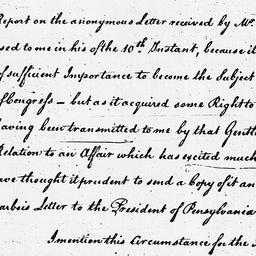 Report on the anonymous Letter received by Mr.
sed to me in his of the 10th Instant, because it
of sufficient Importance to become the Subject
of Congress — but as it acquired some Right to
having been transmitted to me by that Gentl
Relation to an Affair which has excited much
ave thought it prudent to send a Copy of it an
arbois Letter to the President of Pensylvania
I mention this Circumstance for the